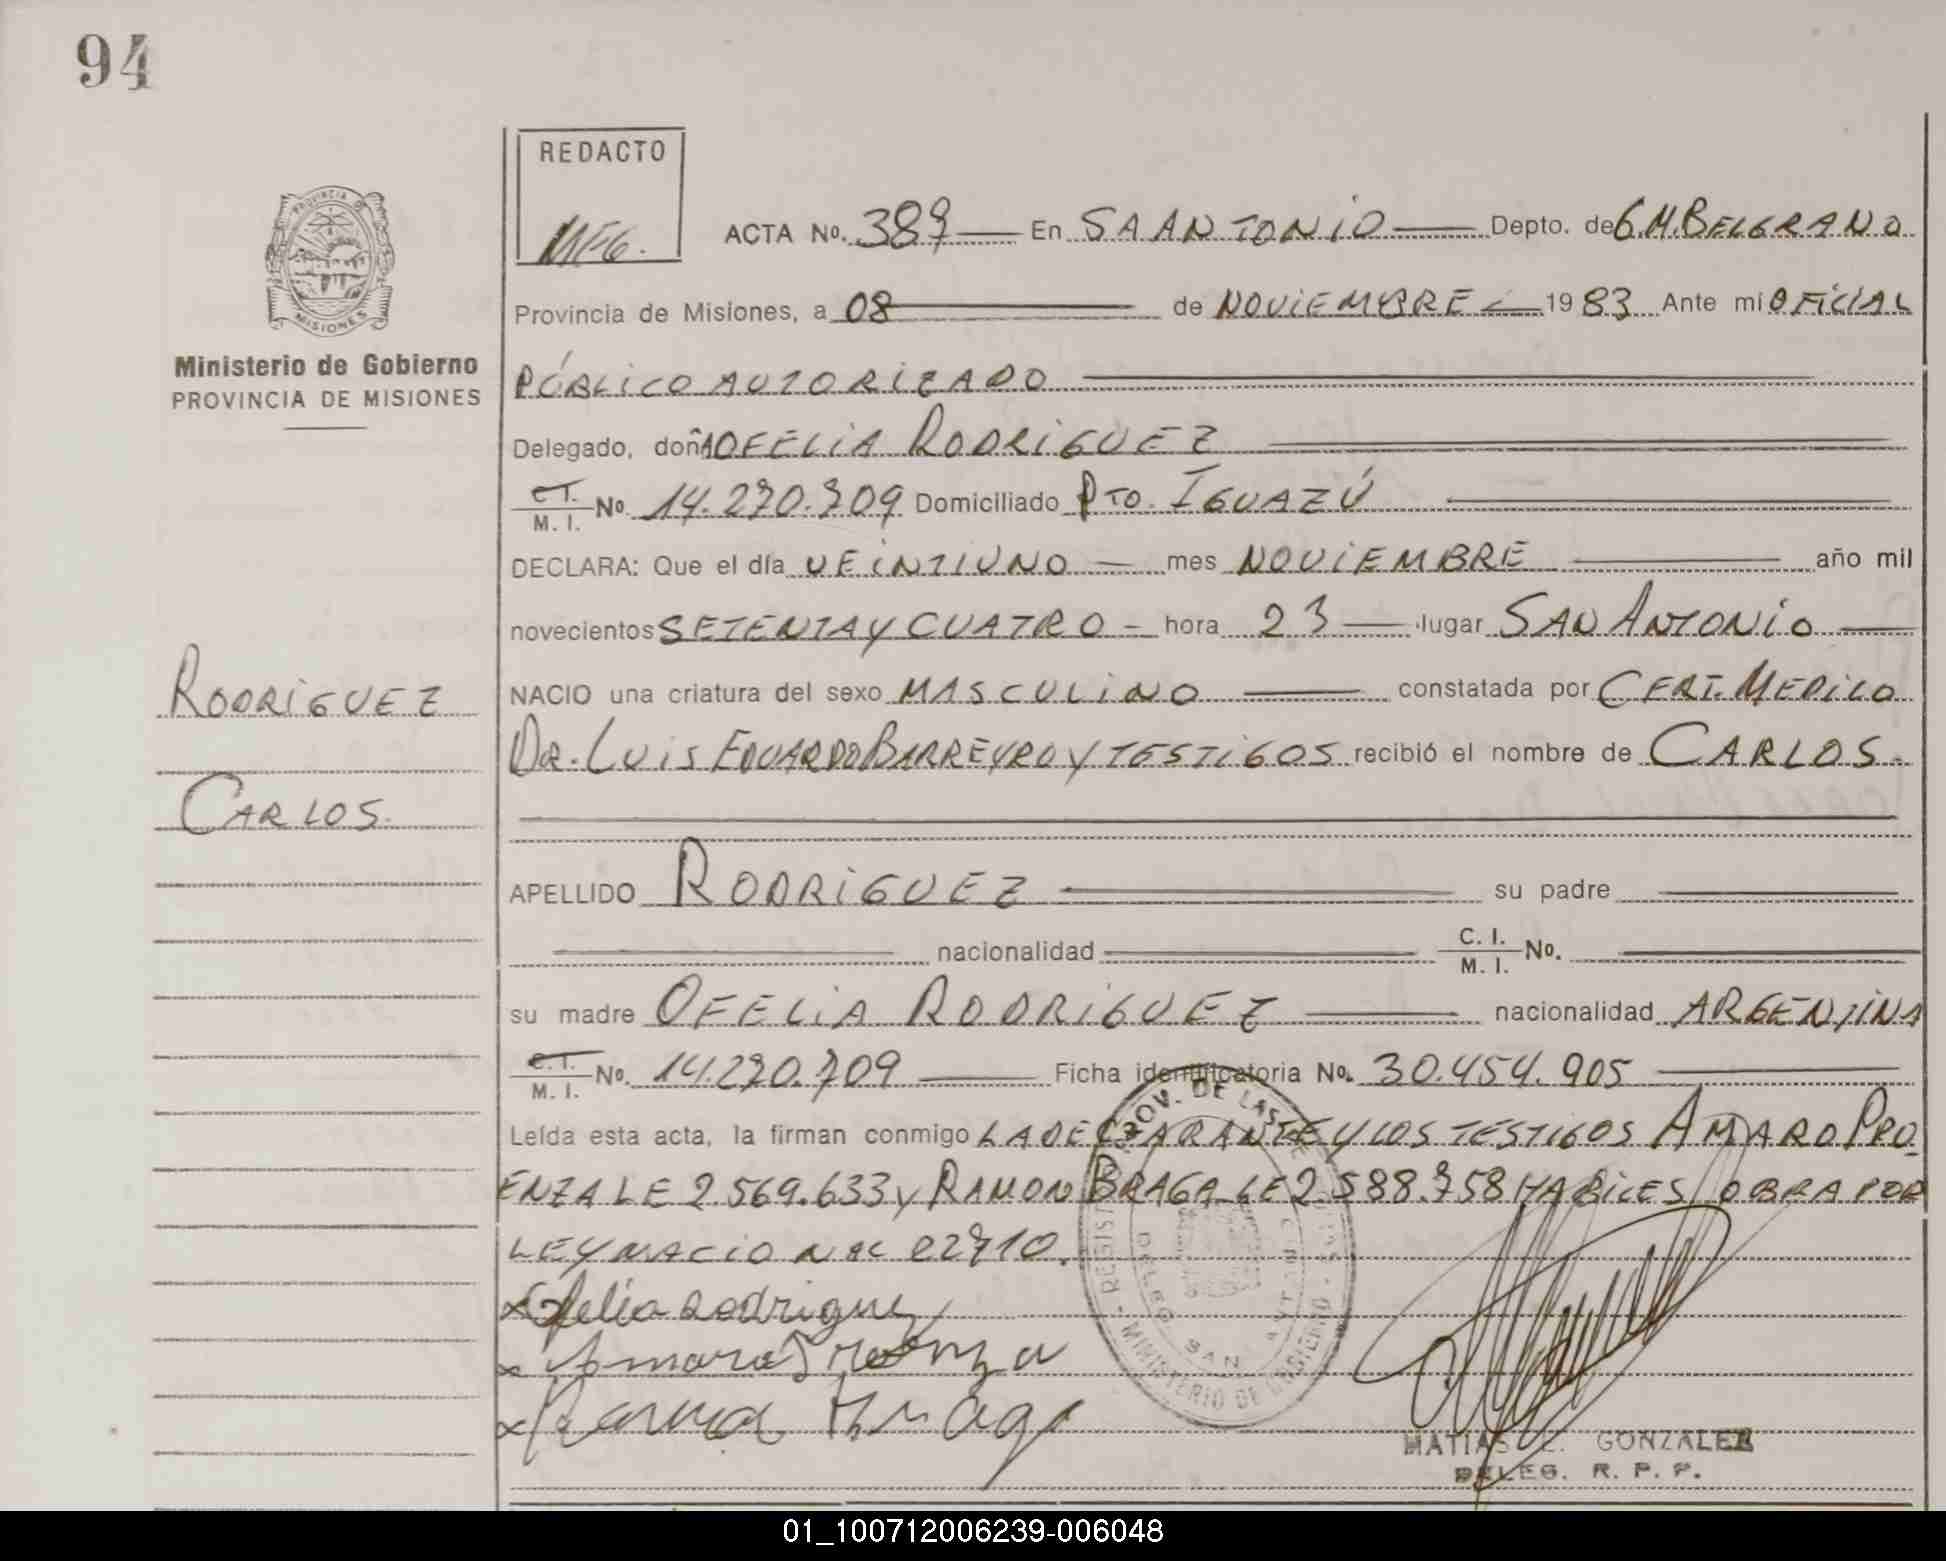 94
REDACTO
MEG.
PROVINCIA DE
MISIONES
Ministerio de Gobierno
PROVINCIA DE MISIONES
ACTA No. 387 En SAANTONIO Depto. de G.M.BELGRANO
Provincia de Misiones, a 08 de NOVIEMBRE 1983 Ante mi OFICIAL
PÚBLICO AUTORIZADO
Delegado, doñA OFELIA RODRIGUEZ
C.I. M. I. No. 14.270.709 Domiciliado PTO. IGUAZÚ
DECLARA: Que el día VEINTIUNO mes NOVIEMBRE año mil
novecientos SETENTA Y CUATRO - hora 23 lugar SAN ANTONIO
RODRIGUEZ
NACIO una criatura del sexo MASCULINO constatada por CERT. MEDICO
DR. LUIS EDUARDO BARREYRO Y TESTIGOS recibió el nombre de CARLOS.
CARLOS.
APELLIDO RODRIGUEZ su padre
nacionalidad C. I. M. I. No.
su madre OFELIA RODRIGUEZ nacionalidad ARGENTINA
C.I. M. I. No. 14.270.709 Ficha identificatoria No. 30.454.905
Leída esta acta, la firman conmigo LA DECLARANTE Y LOS TESTIGOS AMARO PRO
ENZA LE 2.569.633 y RAMON BRAGA LE 2.588.758 HABILES OBRA POR
LEY NACIONAL 22710.
x Ofelia Rodriguez
x Amaro Proenza
x Ramon Braga
PROV. DE LAS
MINISTERIO DE
DELEG. SAN
MATIAS E. GONZALEZ
DELEG. R. P. P.
01_100712006239-006048